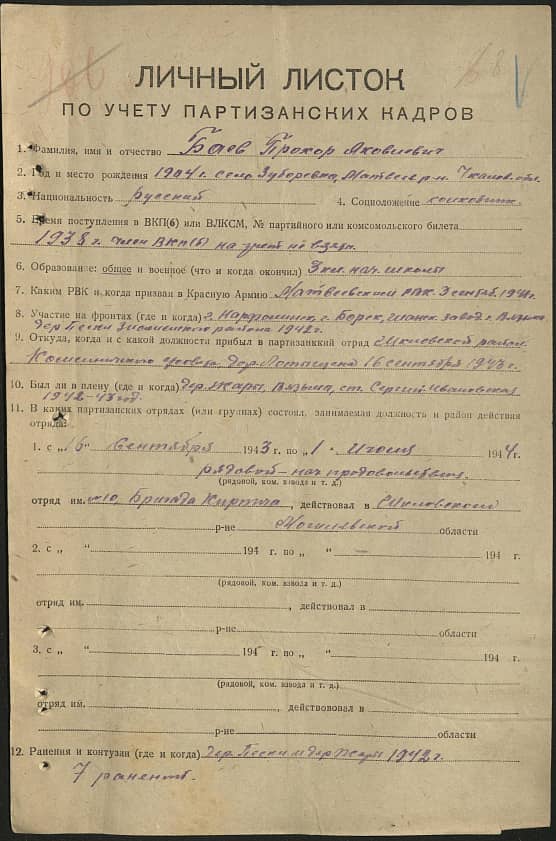 ЛИЧНЫЙ ЛИСТОК
ПО УЧЕТУ ПАРТИЗАНСКИХ КАДРОВ
1. Фамилия, имя и отчество Баев Прохор Яковлевич
2. Год и место рождения 1904 г. село Зуборевка, Матвеев р-н. Чкалов. обл.
3. Национальность русский 4. Соцположение колхозник.
5. Время поступления в ВКП(б) или ВЛКСМ, № партийного или комсомольского билета
1938 г. член ВКП(б) на учет не взяти.
6. Образование: общее и военное (что и когда окончил) 3 кл. нач. школы
7. Каким РВК и когда призван в Красную Армию Матвеевском РВК 3 сентяб. 1941 г.
8. Участие на фронтах (где и когда) г. Нарфоминск, с. Борск, завод г. Вязьма,
дер. Пески района 1942 г.
9. Откуда, когда и с какой должности прибыл в партизанский отряд Шкловский район.
дер. 16 сентября 1943 г.
10. Был ли в плену (где и когда) дер. Жары, Вязьма, ст. Сергей-Ивановская
1942-43 год.
11. В каких партизанских отрядах (или группах) состоял, занимаемая должность и район действия
отряда:
1. с „16" Сентября 1943 г. по „1" Июля 1944 г.
рядовой – нач продовольствия.
(рядовой, ком. взвода и т. д.)
отряд им. Бригада Кирпича, действовал в Шкловском
р-не Могилевской области
2. с „ " 194 г. по „ " – 194 г.
(рядовой, ком. взвода и т. д.)
отряд им. , действовал в
р-не области
3. с „ " 194 г. по „ " 194 г.
(рядовой, ком. взвода и т. д.)
отряд им. , действововал в
р-не области
12. Ранения и контузии (где и когда) дер. Пески и дер Жары 1942 г.
7 ранений.